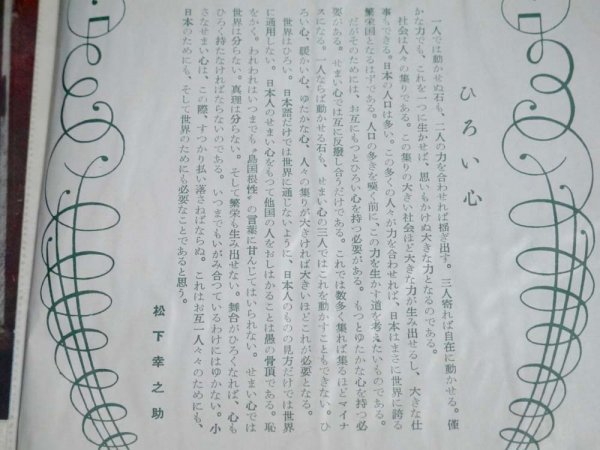 ひろい心
一人では動かせぬ石も、二人の力を合わせれば揺ぎ出す。三人寄れば自在に動かせる。僅
かな力でも、これを一つに生かせば、思いもかけぬ大きな力となるのである。
社会は人々の集りである。この集りの大きい社会ほど大きな力が生み出せるし、大きな仕
事もできる。日本の人口は多い。この多くの人々が力を合わせれば、日本はまさに世界に誇る
繁栄国となるはずである。人口の多きを嘆く前に、この力を生かす道を考えたいものである。
だがそのためには、お互にもっとひろい心を持つ必要がある。もつとゆたかな心を持つ必
要がある。せまい心では互に反撥し合うだけである。これでは数多く集れば集るほどマイナ
スになる。一人ならば動かせる石も、せまい心の三人ではこれを動かすこともできない。ひ
ろい心、暖かい心、ゆたかな心、人々の集りが大きければ大きいほどこれが必要となる。
世界はひろい。日本語だけでは世界に通じないように、日本人のものの見方だけでは世界
に通用しない。日本人のせまい心をもつて他国の人をおしはかることは愚の骨頂である。恥
をかく。われわれはいつまでも“島国根性”の言葉に甘んじてはいられない。せまい心では
世界は分らない。真理は分らない。そして繁栄も生み出せない。舞台がひろくなれば、心も
ひろく持たなければならないのである。いつまでもいがみ合つているわけにはゆかない。小
さなせまい心は、この際、すつかり払い落さねばならぬ。これはお互一人々々のためにも、
日本のためにも、そして世界のためにも必要なことであると思う。
松下幸之助